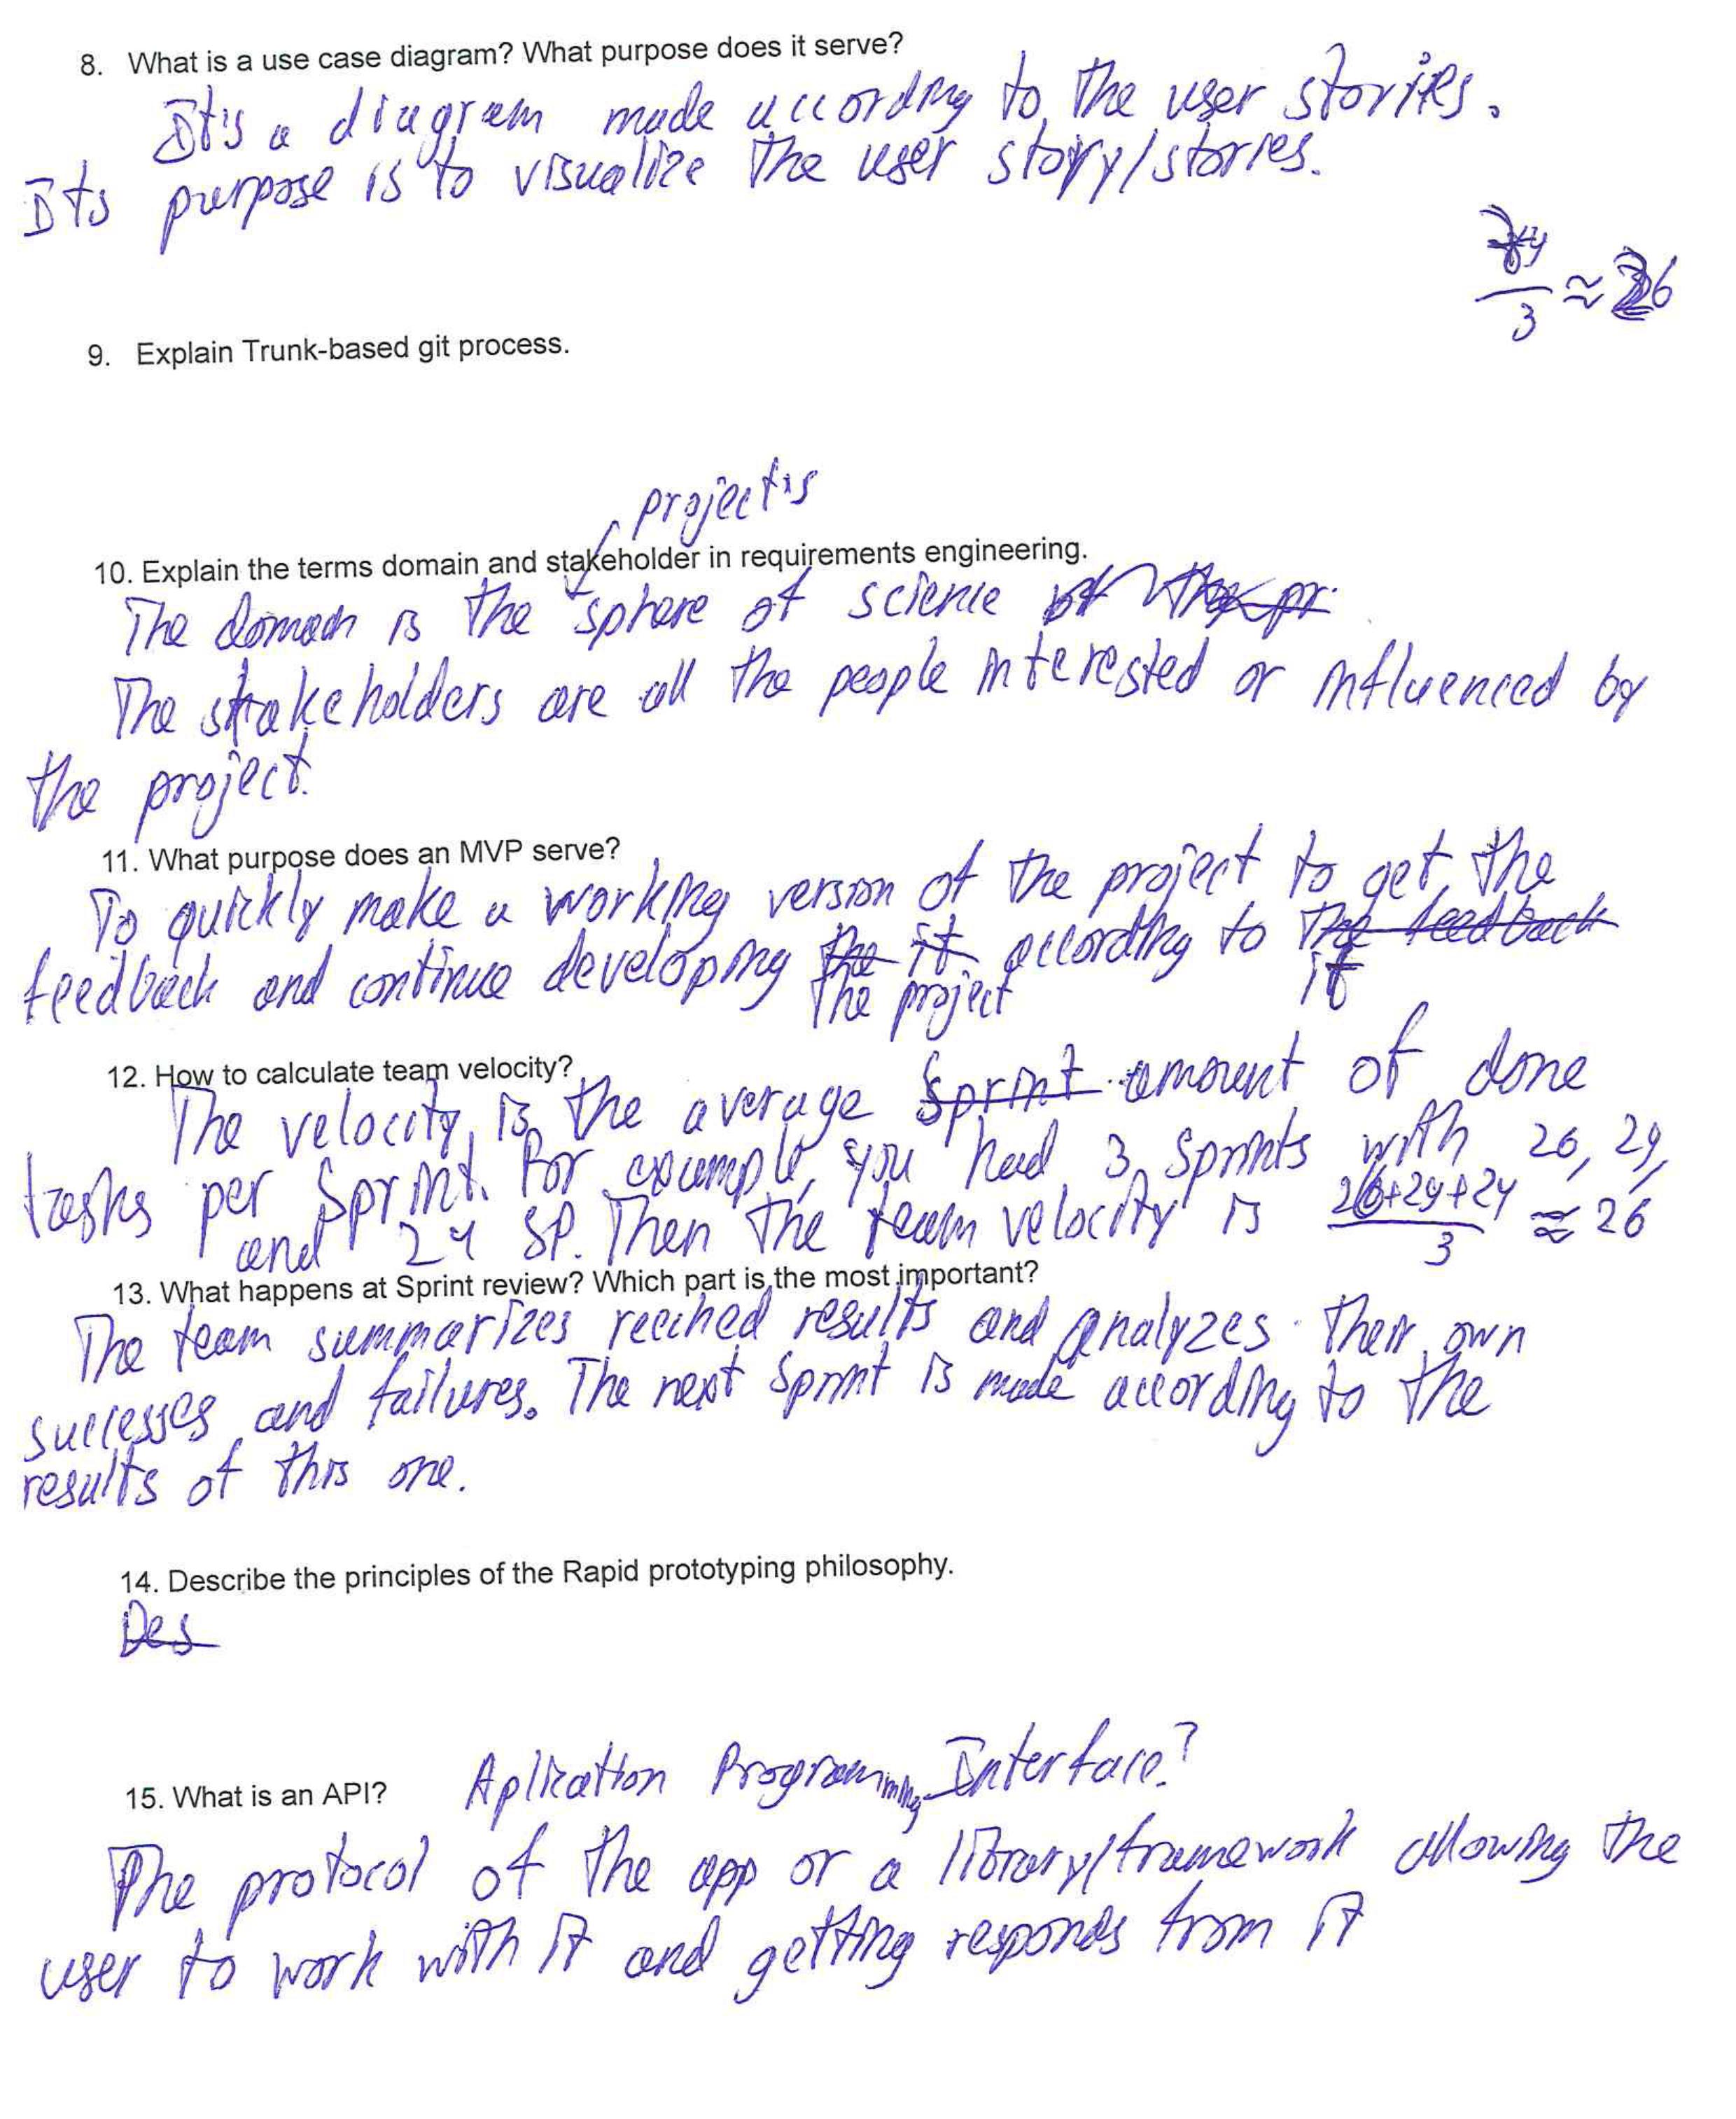 8. What is a use case diagram? What purpose does it serve?
It's a diagram made according to the user stories.
Its purpose is to visualize the user story/stories.
74
3 ≈ 26
9. Explain Trunk-based git process.
project's
10. Explain the terms domain and stakeholder in requirements engineering.
The domain is the sphere of science of the pr.
The stakeholders are all the people interested or influenced by
the project.
11. What purpose does an MVP serve?
To quickly make a working version of the project to get the
feedback and continue developing the it according to the feedback
the project it
12. How to calculate team velocity?
The velocity is the average Sprint amount of done
tasks per Sprint. For example, you had 3 Sprints with 26, 29,
and 24 SP. Then the team velocity is 26+29+24 / 3 ≈ 26
13. What happens at Sprint review? Which part is the most important?
The team summarizes reached results and analyzes their own
successes and failures. The next Sprint is made according to the
results of this one.
14. Describe the principles of the Rapid prototyping philosophy.
Des
15. What is an API? Aplication Programming Interface?
The protocol of the app or a library/framework allowing the
user to work with it and getting responds from it